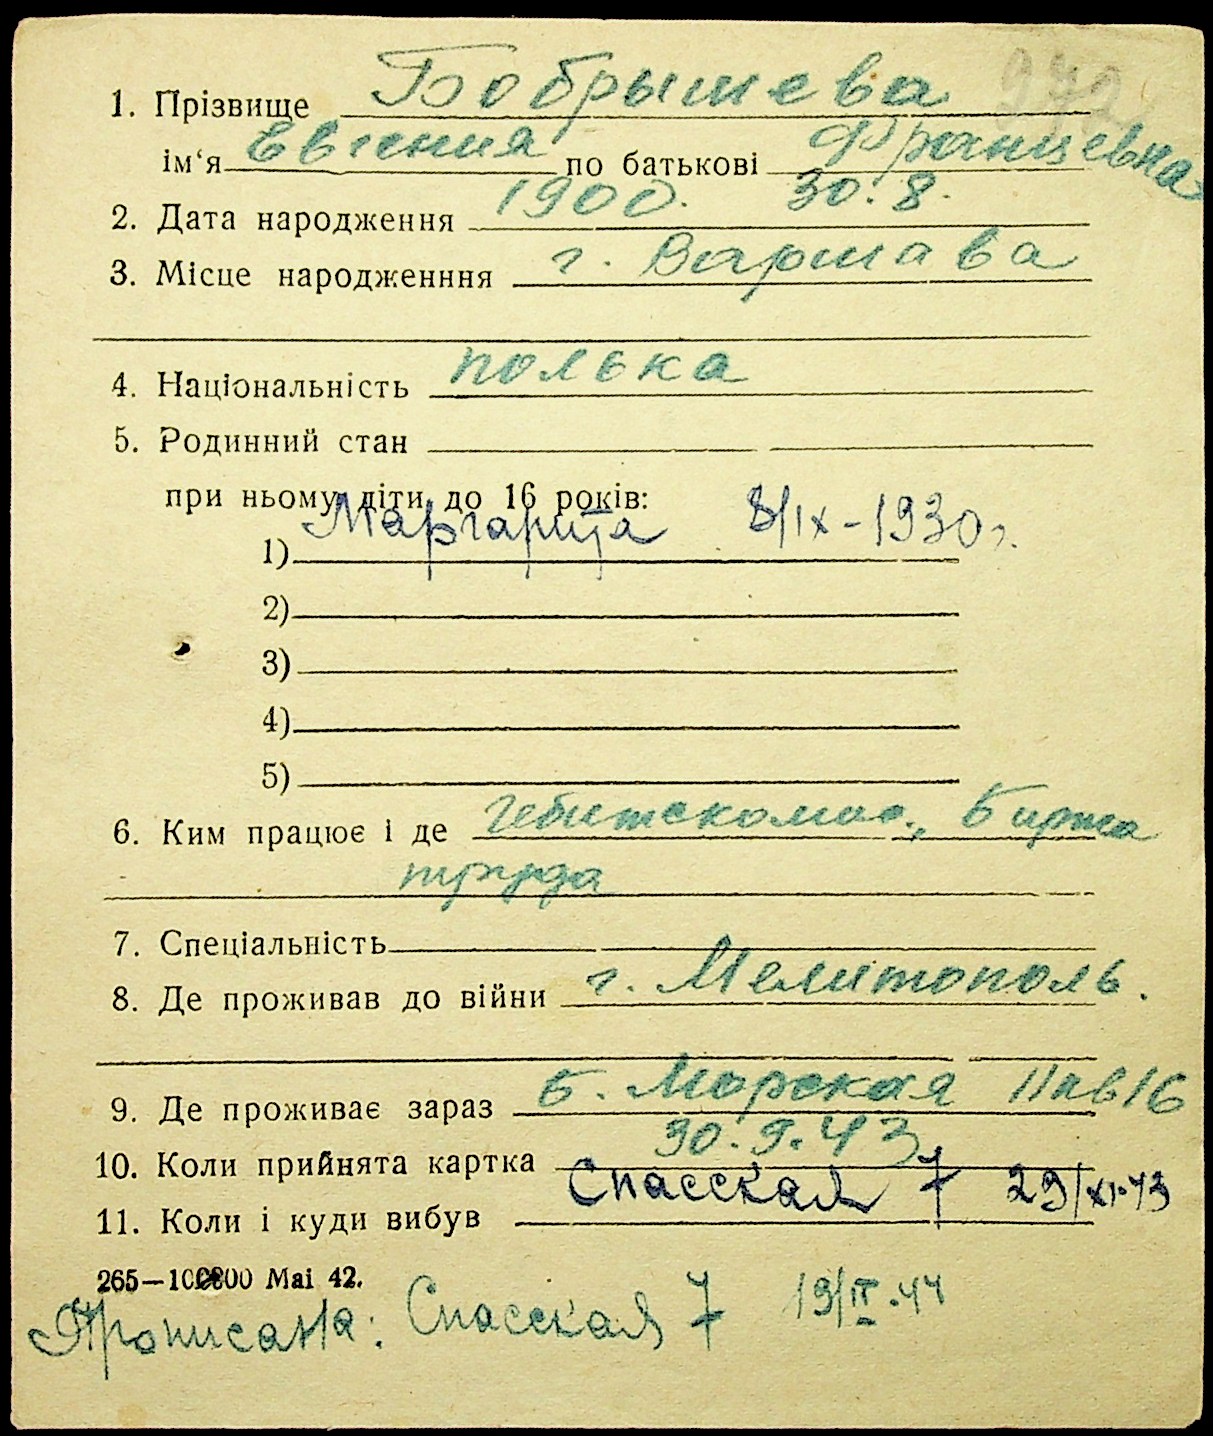 972
1. Прізвище Бобрышева
ім‘я Евгения по батькові Францевна
2. Дата народження 1900. 30.8.
3. Місце народженння г. Варшава
4. Національність полька
5. Родинний стан
при ньому діти до 16 років:
1) Маргарита 8/IX-1930г.
2)
3)
4)
5)
6. Ким працює і де Гебитскомис., Биржа
труда
7. Спеціальність
8. Де проживав до війни г. Мелитополь.
9. Де проживає зараз Б. Морская 11 кв 16
10. Коли прийнята картка 30.9.43
11. Коли і куди вибув Спасская 7 29/XI-43
265— Mai 42.
Прописана: Спасская 7 19/II-44